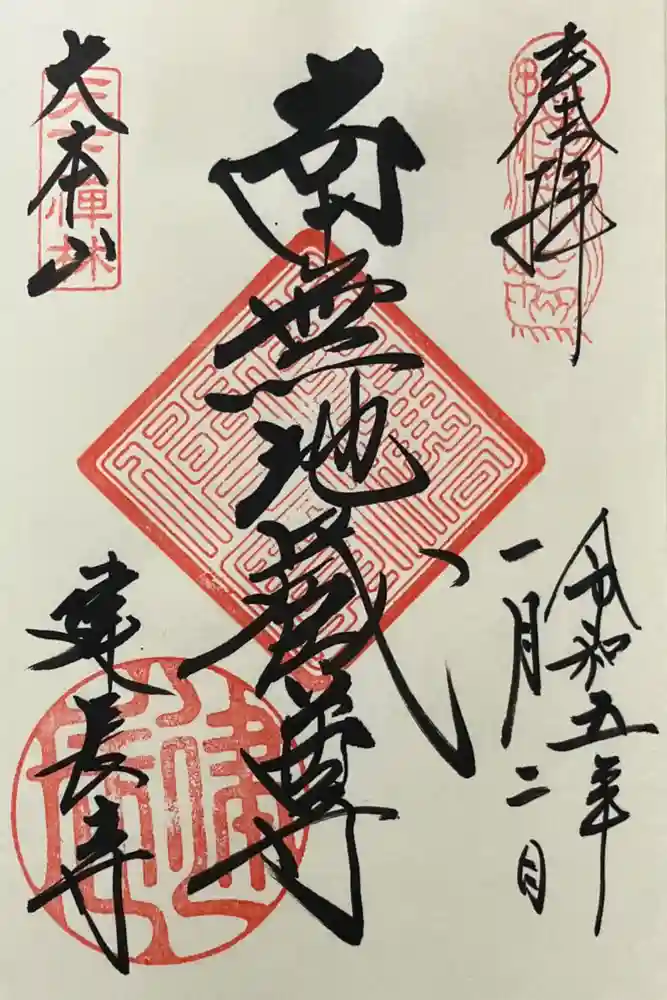 奉拝
令和五年
一月二日
南無地蔵尊
大本山
建長寺
天下禅林